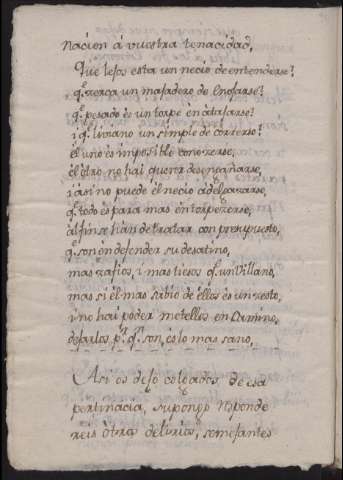 nacion á vuestra tenacidad,
Que lejos esta un necio de entenderse!
q.e cerca un majadero de enojarse!
q.e pesado es un torpe en atajarse!
i q.e liviano un simple de correrse!
el uno és imposible conozerse,
el ótro no hai querer desengañarse,
i asi no puede él necio adelgazarse,
q.e todo és para mas entorpezerse,
al fin se han de tratar con presupuesto,
q.e son én defender su desatino,
mas zafios, i mas tiesos q.e un Villano,
mas si él mas sabio de éllos és un zesto,
i no hai poder metellos en Camino,
dejarlos p.r q.e son, és lo mas sano,
Asi os dejo colgados de esa
pertinacia, supongo responde
reis ótros delirios, semejantes